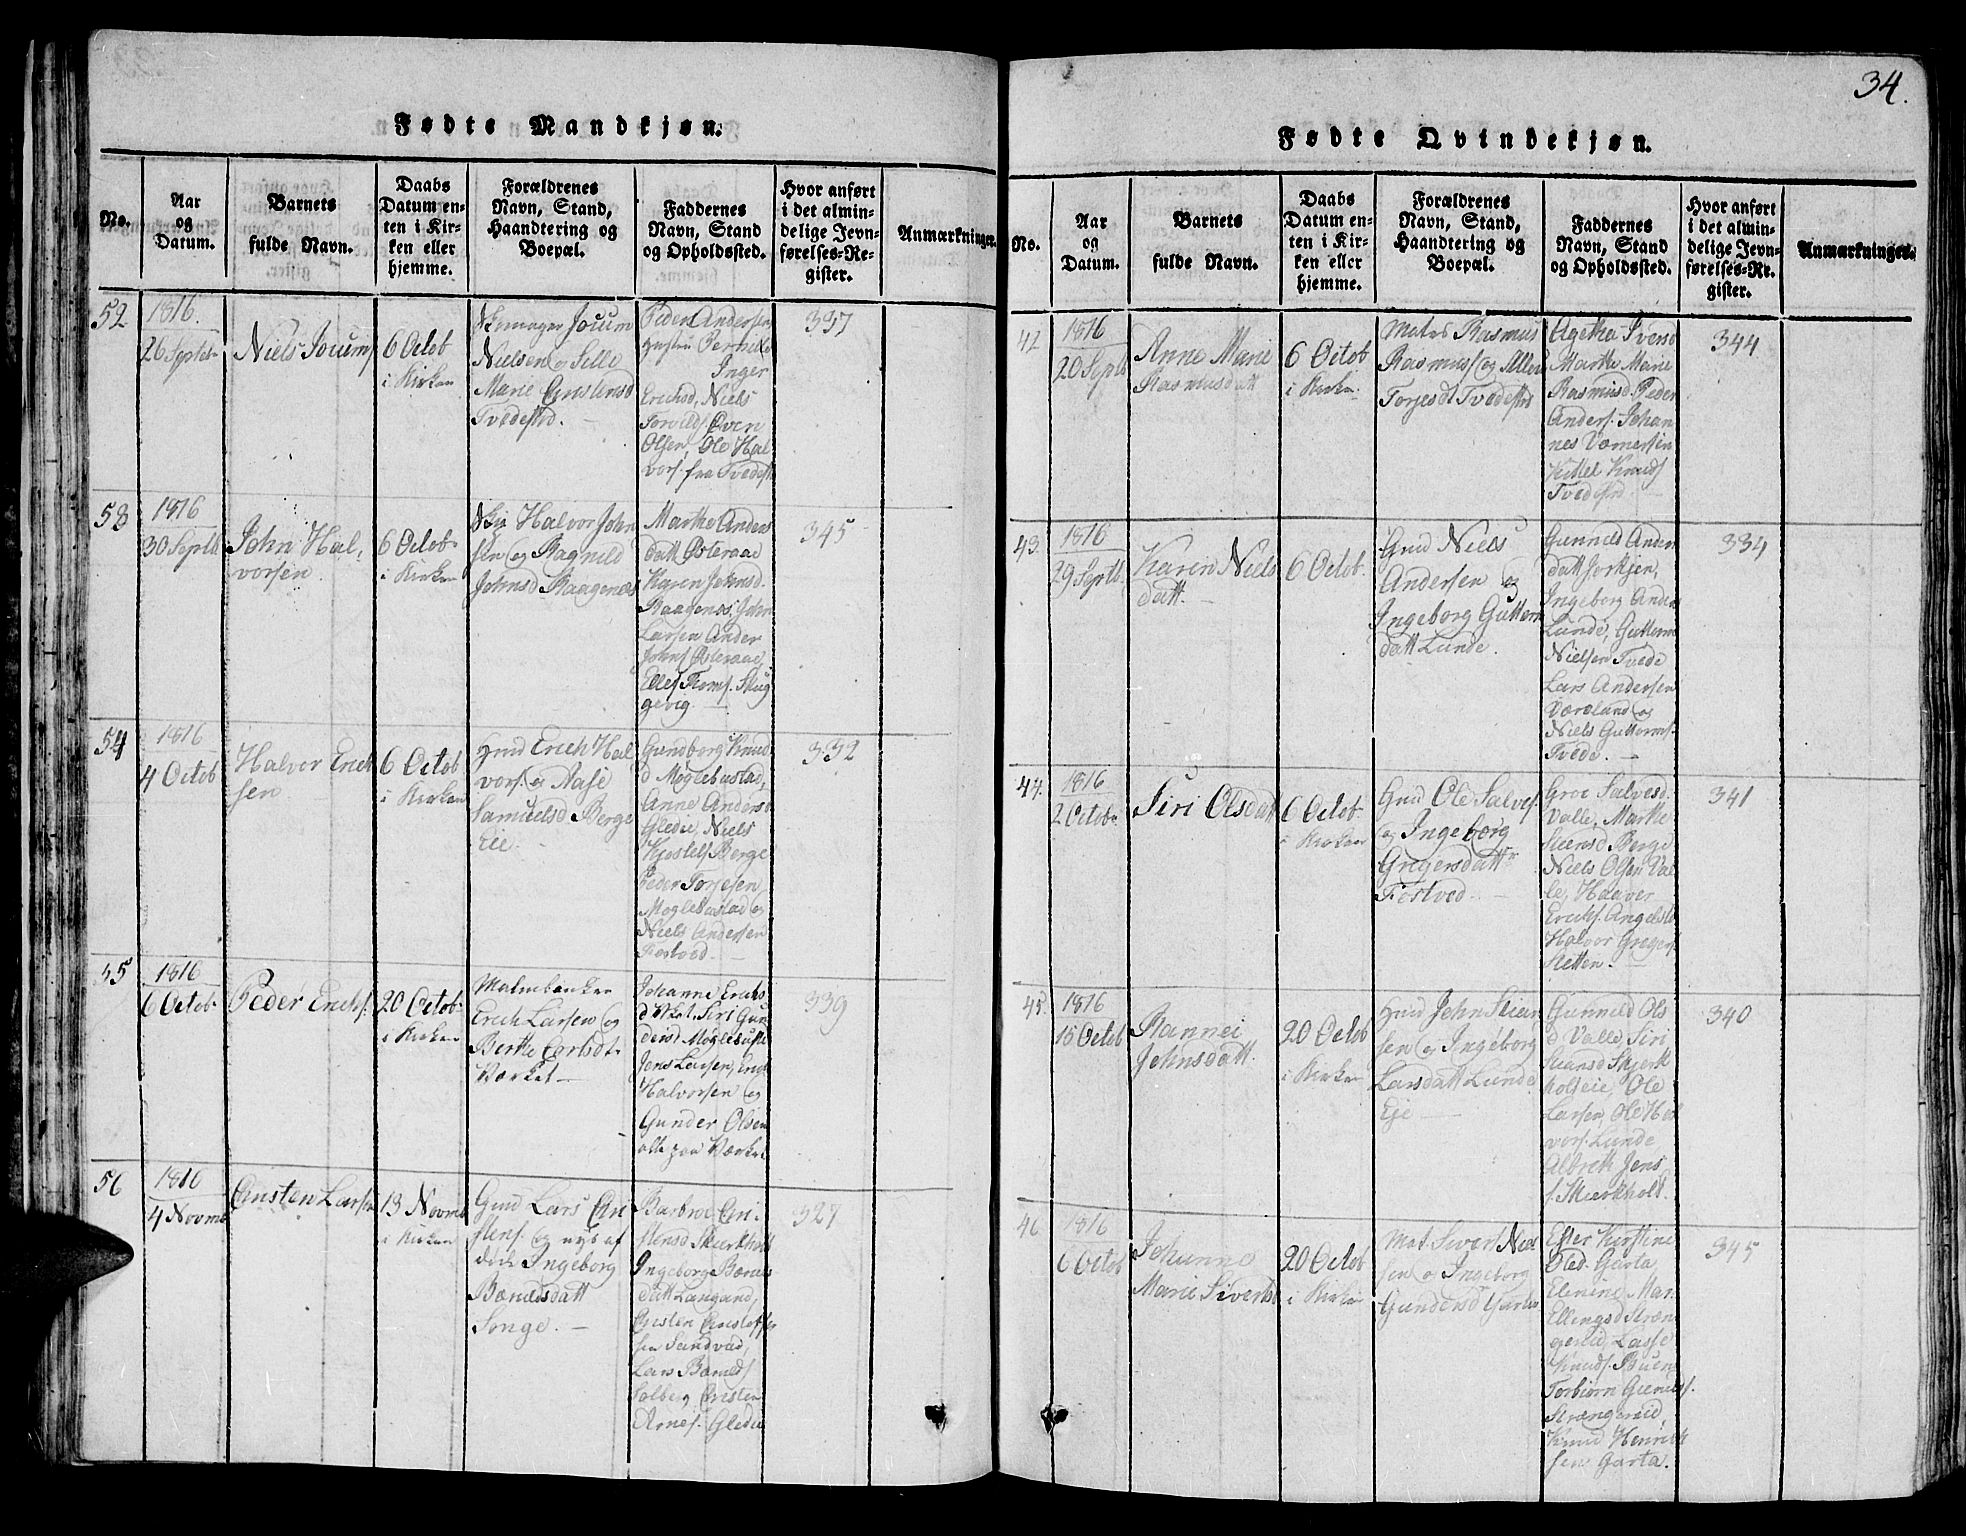 34.
Fødte Mandkjøn.
No.
Aar
og
Datum.
Barnets
fulde Navn.
Daabs
Datum en-
ten i Kir-
ken eller
hjemme.
Forældrenes
Navn, Stand,
Haandtering og
Boepæl.
Faddernes
Navn, Stand
og Opholdssted.
Hvor anført
i det almin-
delige Jevn-
førelses-Re-
gister.
Anmærkninger.
52
1816.
26 Septbr
Niels Jocums
6 Octob
i Kirken
Skomager Jocum
Nielsen og Sille
Marie Christensd
Tvedestrd.
Peder Andersen
hustru Pernille
Inger
Erichsd, Niels
Torvilds. Even
Olsen, Ole Hal
vors. fra Tvedest
337
53
1816
30 Septb
John Hal-
vorsen
6 Octob.
i Kirken
Halvor John
sen og Ragnild
Johnsd Raagenæs
Marthe Anders
datt Østeraae
Karen Johnsd.
Raagenæs, John
Larsen Ander
Johns Østeraae,
Ellef Thoms. Skug
gevig
345
54
1816
4 Octob
Halvor Erich
sen
6 Octob
i Kirken
Gmd Erich Hal
vors. og Aase
Samuelsd Berge
Eie.
Gundborg Knud
d Moglebustad,
Anne Andersd
Gledie, Niels
Kjostels Berge
Peder Torjesen
Moglebustad og
Niels Andersen
Fostved.
332
55
1816
6 Octob
Peder Erichs.
20 Octob
i Kirken
Malmbanker
Erich Larsen og
Berthe Carlsdt.
Værket
Johanne Erichs
d Vket. Siri Gun
dersd Moglebust
Jens Larsen, Erich
Halvorsen og
Gunder Olsen
alle paa Værket
339
56
1816
4 Novmb
Cristen Larsen
13 Novmb
i Kirken
Gmd Lars Cri
stens. og nys af
døde Ingeborg
Bærulsdatt
Songe.
Barbroe Cri-
stensd Skierkholt
Ingeborg Bæruls
datt Langand,
Cristen Cristoffer
sen Sandvad,
Lars Bæruls
Solberg Cristen
Arnes. Gledie
327
Fødte Qvindekjøn.
No.
Aar
og
Datum.
Barnets
fulde Navn.
Daabs
Datum en-
ten i Kir-
ken eller
hjemme.
Forældrenes
Navn, Stand,
Haandtering og
Boepæl.
Faddernes
Navn, Stand
og Opholdssted.
Hvor anført
i det almin-
delige Jevn-
førelses-Re-
gister.
Anmærkninger.
42
1816
20 Septb
Anne Marie
Rasmusdatt
6 Octob
i Kirken.
Matrs Rasmus
Rasmus. og Allet
Torjesdt Tvedestrd
Agetha Ivers
Marthe Marie
Rasmusd. Peder
Anders. Johan
nes Værnersen
Kittel Knuds
Tvedestrd.
344
43.
1816
29 Septb.
Karen Niels
datt.
6 Octob.
Gmd Niels
Andersen og
Ingeborg Guttorm
datt Lunde.
Gunnild Ander
datt Jorkjen,
Ingeborg Anders
Lunde, Guttorm
Nielsen Tvede
Lars Andersen
Væreland og
Niels Guttorms.
Tvede.
334
44.
1816
2 Octobr
Siri Olsdatt
6 Octob.
i Kirken
Gmd Ole Salves.
og Ingeborg
Gregersdattr
Fostved.
Groe Salvesd.
Valle, Marthe
Stiensd Berge
Niels Olsen Val
le, Haaver
Erichs. Angelst
Halvor Gregers
Sletten.
341
45.
1816
15 Octob
Rannei
Johnsdatt.
20 Octob
i Kirken
Hmd John Stian
sen og Ingeborg
Larsdatt Lunde
Eje
Gunnild Ols
d Valle, Siri
Stiansd Skjerk
holt eie, Ole
Larsen, Ole Hal
vors. Lunde
Albreth Jens
s. Skierkholt.
340
46
1816
6 Octob
Johanne
Marie Sivertsd
20 Octob
i Kirken
Mat. Sivert Niel
sen og Ingeborg
Gundersd Garta
Ester Kirstine
Olsd. Garta,
Elenine Mar.
Ellingsd Stræn
gereid, Lasse
Knuds. Buene
Torbiørn Gienulfs.
Strængereid,
Knud Henrich
sen Garta.
345